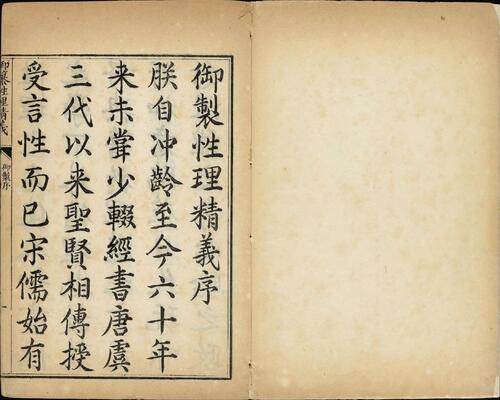 御製性理精義序
朕自冲齡至今六十年
来未甞少輟經書唐虞
三代以來聖賢相傳授
受言性而已宋儒始有
御纂性理精義
御製序